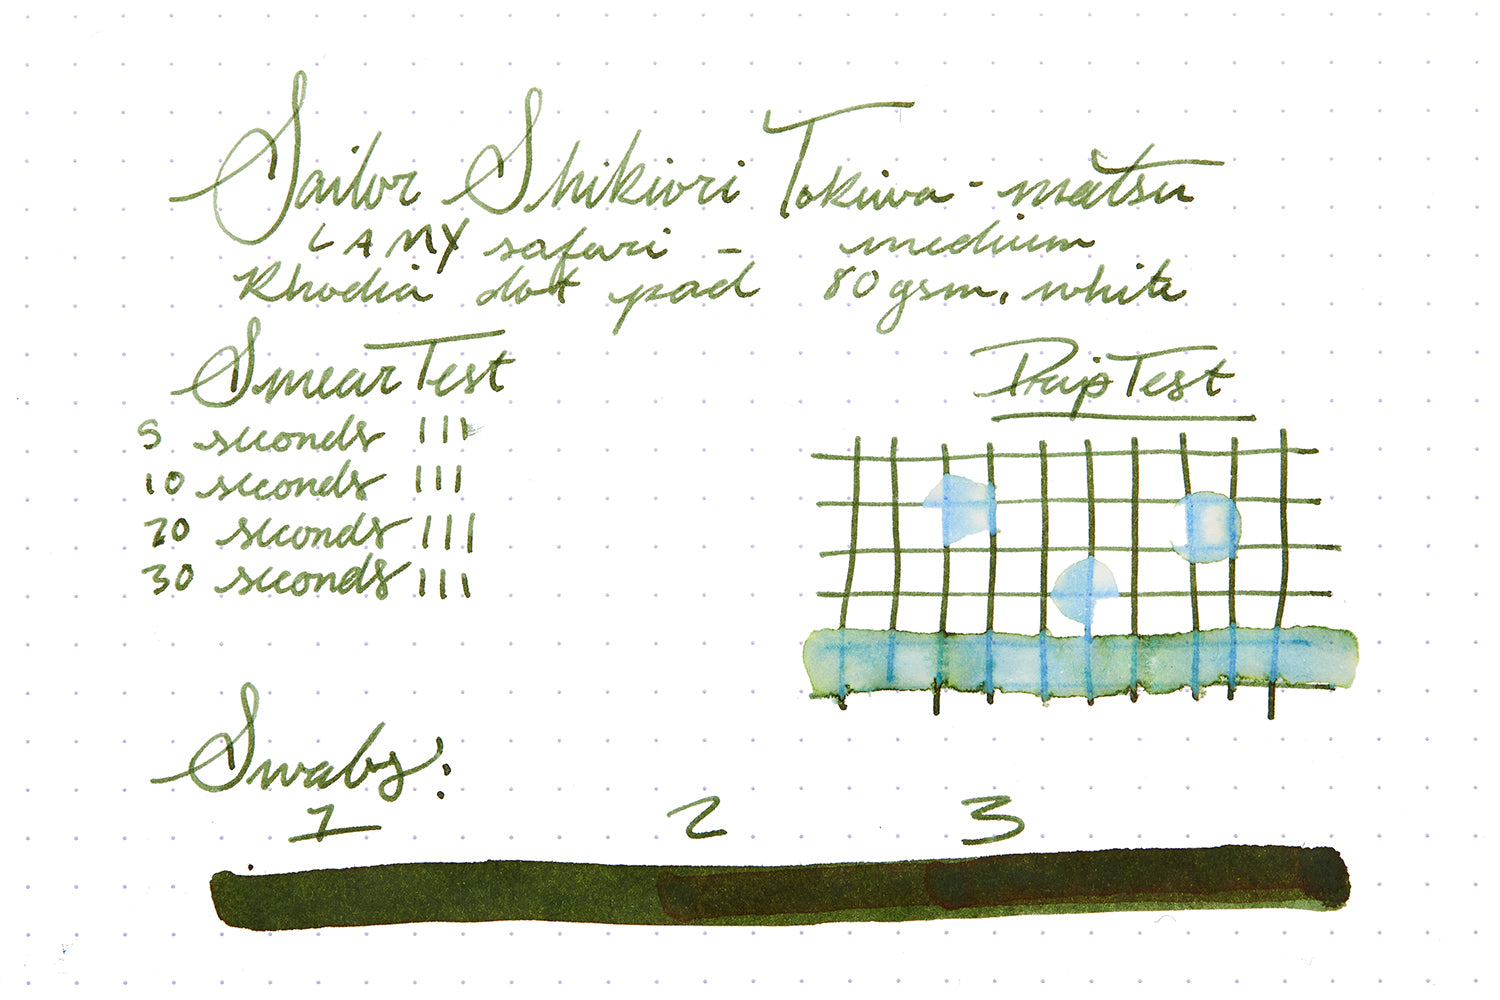 Sailor Shikiori Tokiwa-matsu
LAMY safari - medium
Rhodia dot pad 80 gsm, white
Smear Test
5 seconds
10 seconds
20 seconds
30 seconds
Drip Test
Swabs:
1 2 3